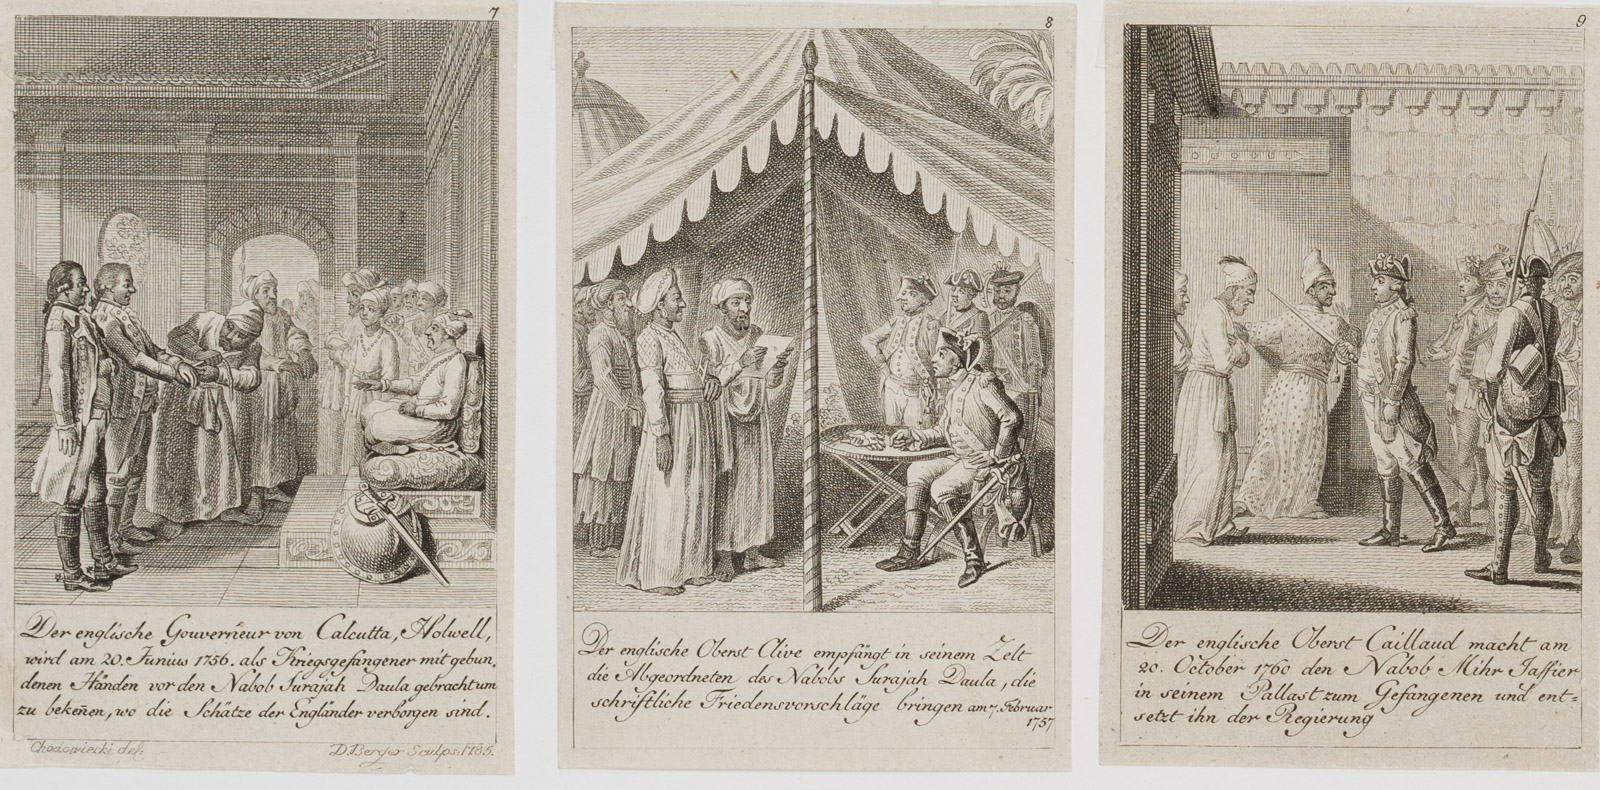 7
Der englische Gouverneur von Calcutta, Holwell,
wird am 20. Junius 1756. als Kriegsgefangener mit gebun,
denen Händen vor den Nabob Surajah Daula gebracht um
zu bekeñen, wo die Schätze der Engländer verborgen sind.
Chodowiecki del.
D. Berger Sculps: 1785.
8
Der englische Oberst Clive empfängt in seinem Zelt
die Abgeordneten des Nabobs Surajah Daula, die
schriftliche Friedensvorschläge bringen am 7. Februar
1757
9
Der englische Oberst Caillaud macht am
20. October 1760 den Nabob Mihr Jaffier
in seinem Pallast zum Gefangenen und ent=
setzt ihn der Regierung